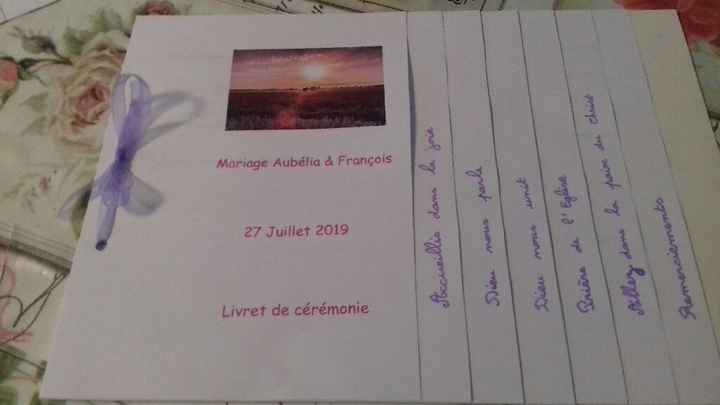 Mariage Aubélia & François
27 Juillet 2019
Livret de cérémonie
Accueillis dans la joie
Dieu nous parle
Dieu nous unit
Prière de l'Eglise
Allez dans la paix du Christ
Remerciements